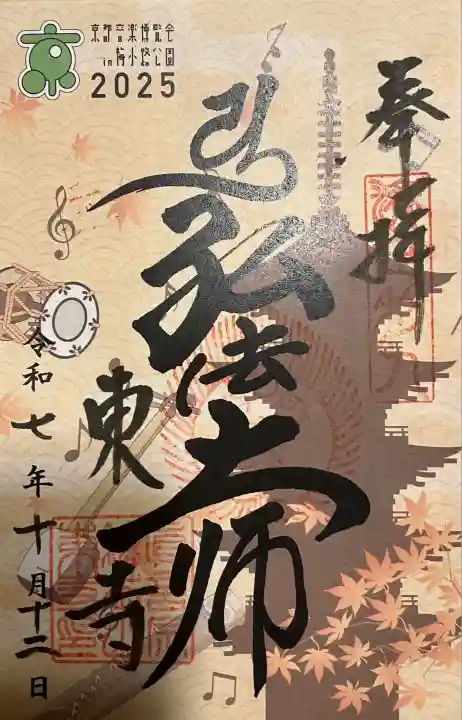 京都音楽博覧会
in 梅小路公園
2025
奉拝
弘法大师
東寺
令和七年十月十二日